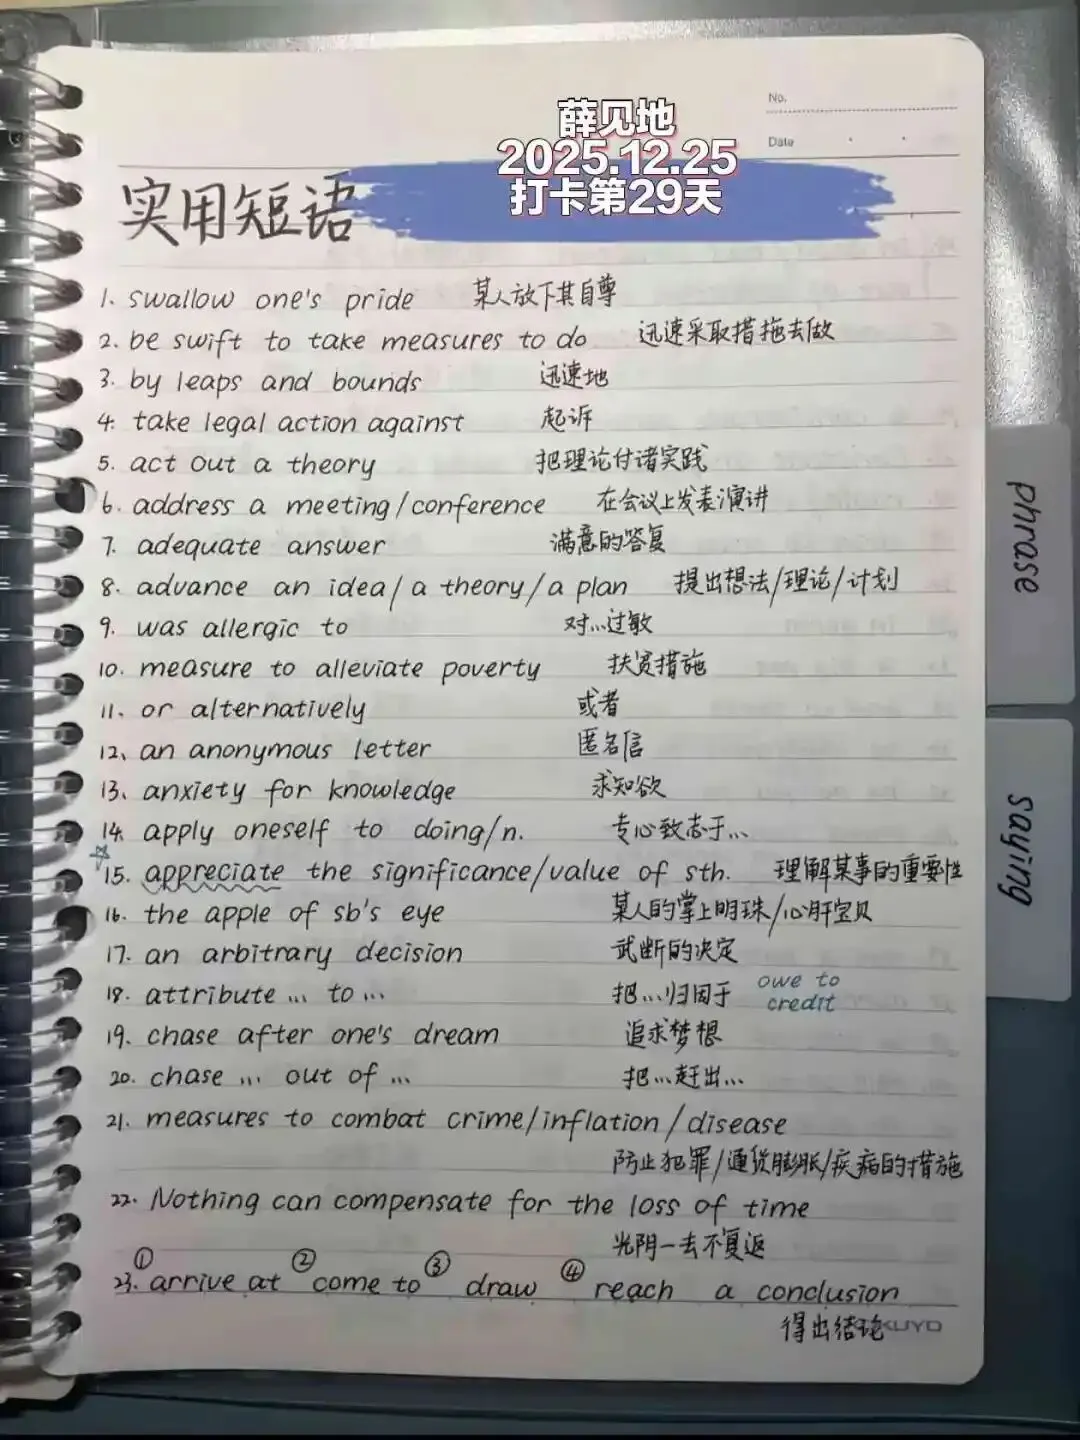 No.
Date
薛见地
2025.12.25
打卡第29天
实用短语
1. swallow one's pride 某人放下其自尊
2. be swift to take measures to do 迅速采取措拖去做
3. by leaps and bounds 迅速地
4. take legal action against 起诉
5. act out a theory 把理论付诸实践
6. address a meeting/conference 在会议上发表演讲
7. adequate answer 满意的答复
8. advance an idea/a theory/a plan 提出想法/理论/计划
9. was allergic to 对...过敏
10. measure to alleviate poverty 扶贫措施
11. or alternatively 或者
12. an anonymous letter 匿名信
13. anxiety for knowledge 求知欲
14. apply oneself to doing/n. 专心致志于...
☆15. appreciate the significance/value of sth. 理解某事的重要性
16. the apple of sb's eye 某人的掌上明珠/心肝宝贝
17. an arbitrary decision 武断的决定
18. attribute ... to ... 把...归因于 owe to
credit
19. chase after one's dream 追求梦想
20. chase ... out of ... 把...赶出...
21. measures to combat crime/inflation/disease
防止犯罪/通货膨胀/疾病的措施
22. Nothing can compensate for the loss of time
光阴一去不复返
23. ①arrive at ②come to ③draw ④reach a conclusion
得出结论
KUYO
phrase
saying